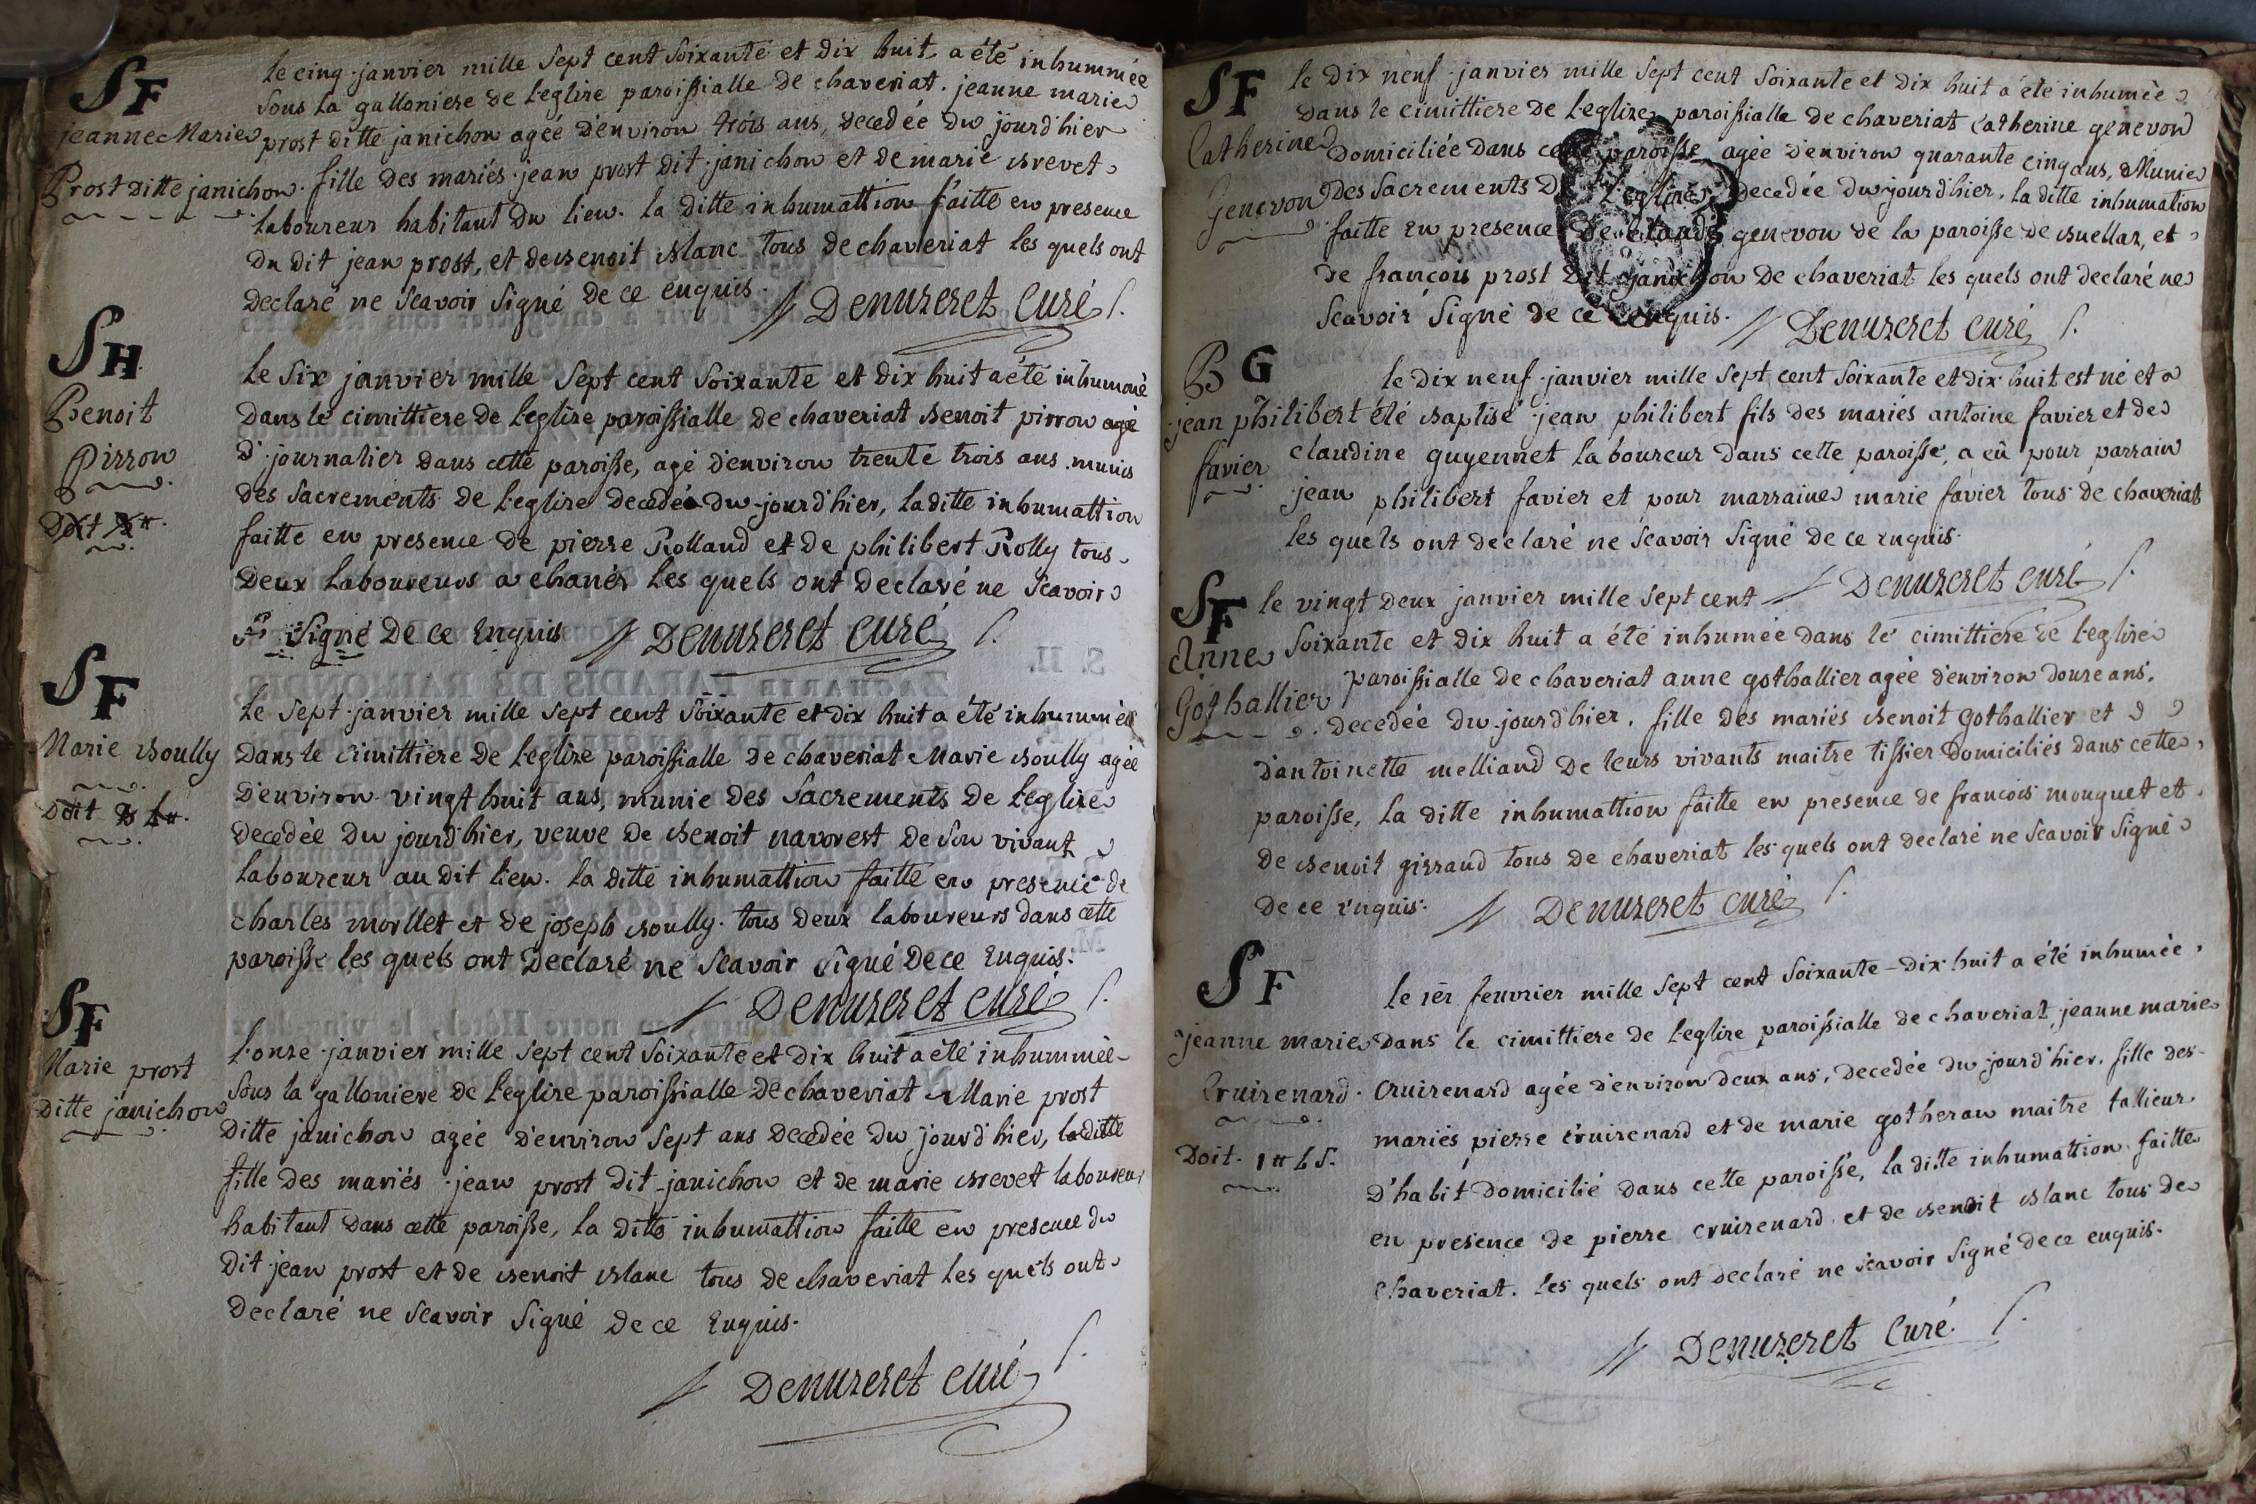 SF
jeanne Marie
Prost ditte janichon.
le cinq janvier mille sept cent soixante et dix huit a été inhummée
sous la galloniere de l'eglise paroissialle de chaveriat. jeanne marie
prost ditte janichon agée d'environ trois ans, decedée du jourd'hier
fille des mariés jean prost dit janichon et de marie brevet
laboureur habitant du lieu. la ditte inhumattion faitte en presence
du dit jean prost, et de benoit blanc tous de chaveriat les quels ont
declaré ne scavoir signé de ce enquis.
Denuzeret Curé
SH
Benoit
Pirron
le six janvier mille sept cent soixante et dix huit a été inhumoué
dans le cimittiere de l'eglise paroissialle de chaveriat benoit pirron agé
d. journalier dans cette paroisse, agé d'environ trente trois ans munis
des sacrements de l'eglise decedé du jourd'hier, la ditte inhumattion
faitte en presence de pierre Rolland et de philibert Rolly tous
deux laboureurs a chanés les quels ont declaré ne scavoir
signé de ce Enquis Denuzeret Curé
SF
Marie boully
doit
le sept janvier mille sept cent soixante et dix huit a été inhumée
dans le cimittiere de l'eglise paroissialle de chaveriat Marie boully agée
d'environ vingt huit ans, munie des sacrements de l'eglise
decedée du jourd'hier, veuve de benoit navorest de son vivant
laboureur au dit lieu. la ditte inhumattion faitte en presence de
charles morllet et de joseph boully. tous deux laboureurs dans cette
paroisse les quels ont declaré ne scavoir signé de ce Enquis.
Denuzeret Curé
SF
Marie prost
ditte janichon
l'onze janvier mille sept cent soixante et dix huit a été inhummée
sous la galloniere de l'eglise paroissialle de chaveriat Marie prost
ditte janichon agée d'environ sept ans decedée du jourd'hier, la ditte
fille des mariés jean prost dit janichon et de marie brevet laboureur
habitant dans cette paroisse, la ditte inhumattion faitte en presence du
dit jean prost et de benoit blanc tous de chaveriat les quels ont
declaré ne scavoir signé de ce Enquis.
Denuzeret curé
SF
Catherine
Genevon
le dix neuf janvier mille sept cent soixante et dix huit a été inhumée
dans le cimittiere de l'eglise paroissialle de chaveriat catherine genevon
domiciliée dans cette paroisse agée d'environ quarante cinq ans, Munie
des sacrements de l'eglise decedée du jourd'hier, la ditte inhumation
faitte en presence de claude genevon de la paroisse de buellas, et
de francois prost dit janichon de chaveriat les quels ont declaré ne
scavoir signé de ce enquis. Denuzeret curé
BG
jean philibert
favier
le dix neuf janvier mille sept cent soixante et dix huit est né et a
été baptisé jean philibert fils des mariés antoine favier et de
claudine guyennet laboureur dans cette paroisse, a eû pour parrain
jean philibert favier et pour marraine marie favier tous de chaveriat
les quels ont declaré ne scavoir signé de ce enquis.
Denuzeret curé
SF
Anne
Gothallier
le vingt deux janvier mille sept cent
soixante et dix huit a été inhumée dans le cimittiere de l'eglise
paroissialle de chaveriat anne gothallier agée d'environ douze ans,
decedée du jourd'hier. fille des mariés benoit Gothallier et
d'antoinette melliand de leurs vivants maitre tissier domiciliés dans cette
paroisse, la ditte inhumattion faitte en presence de francois monguet et
de benoit girraud tous de chaveriat les quels ont declaré ne scavoir signé
de ce enquis. Denuzeret curé
SF
jeanne marie
Cruizenard.
Doit.
le 1er feuvrier mille sept cent soixante-dix huit a été inhumée
dans le cimittiere de l'eglise paroissialle de chaveriat, jeanne marie
cruizenard agée d'environ deux ans, decedée du jourd'hier. fille des
mariés pierre cruizenard et de marie gotheran maitre tallieur
d'habit domicilié dans cette paroisse, la ditte inhumattion faitte
en presence de pierre cruizenard et de benoit blanc tous de
chaveriat. les quels ont declaré ne scavoir signé de ce enquis.
Denuzeret Curé.